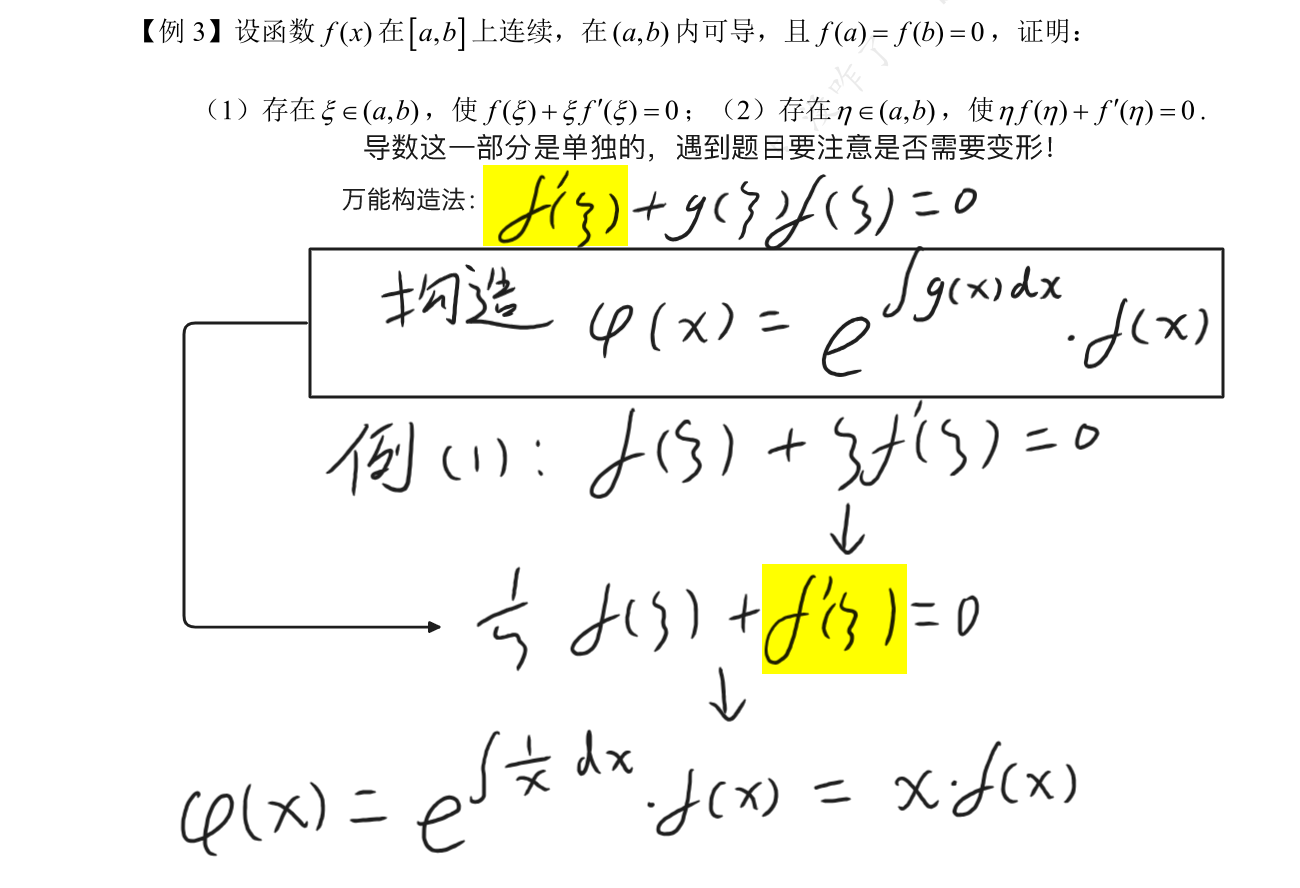 【例 3】设函数 f(x) 在 [a,b] 上连续，在 (a,b) 内可导，且 f(a)=f(b)=0，证明：
（1）存在 ξ∈(a,b)，使 f(ξ)+ξf′(ξ)=0；（2）存在 η∈(a,b)，使 ηf(η)+f′(η)=0.
导数这一部分是单独的，遇到题目要注意是否需要变形！
万能构造法： f′(ξ)+g(ξ)f(ξ)=0
构造 φ(x)=e^{∫g(x)dx}·f(x)
例(1)： f(ξ)+ξf′(ξ)=0
↓
1/ξ f(ξ)+f′(ξ)=0
↓
φ(x)=e^{∫1/x dx}·f(x)=x·f(x)